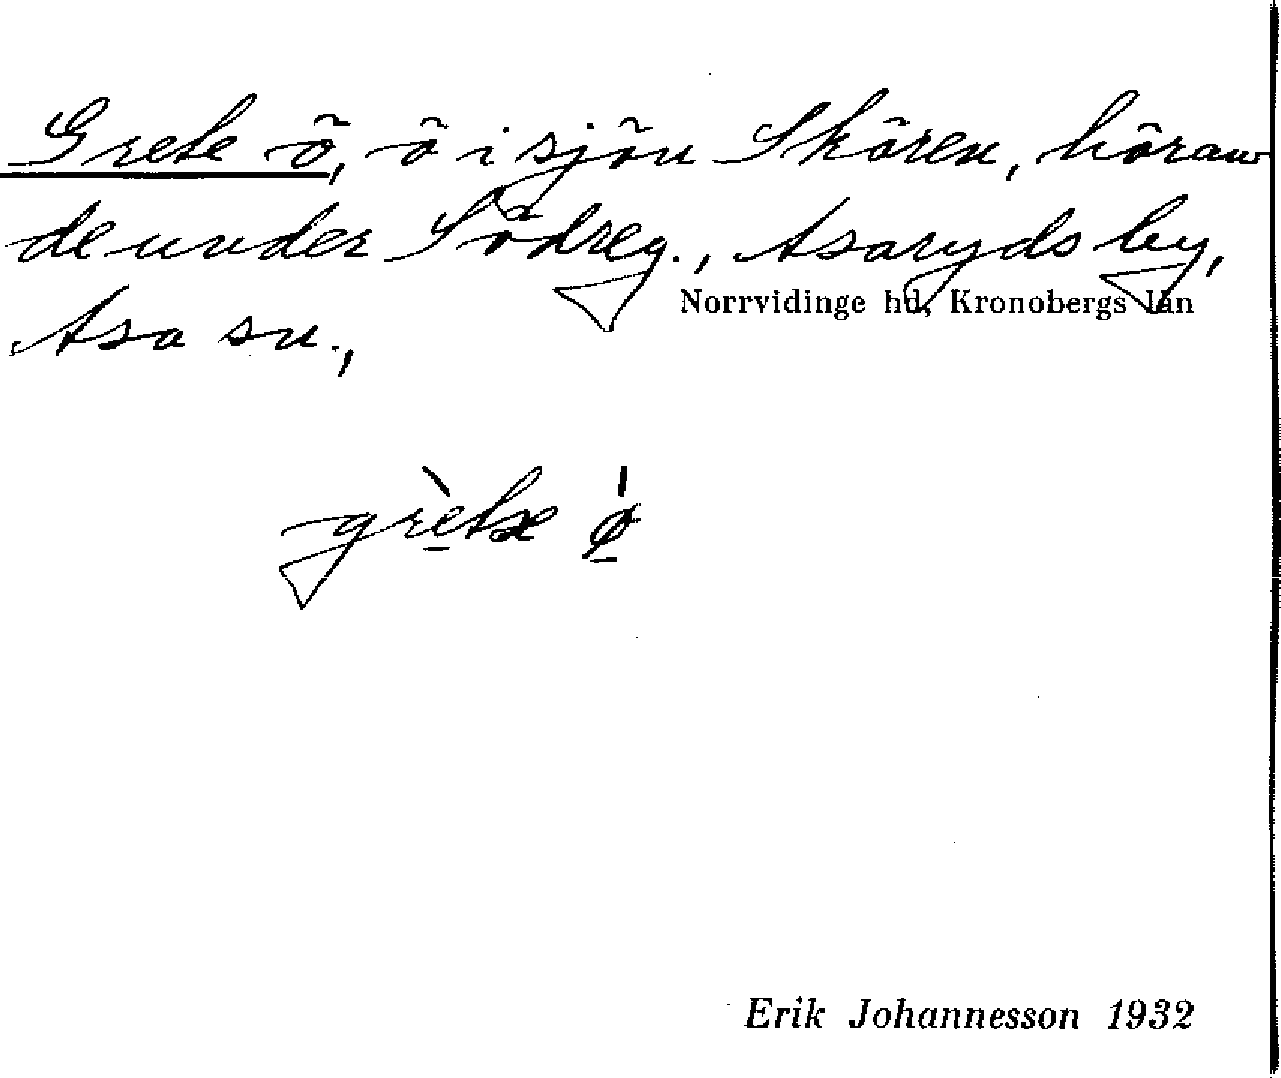 Grete ö, ö i sjön Skären, höran-
de under Södreg., Asaryds by,
Norrvidinge hd, Kronobergs län
Asa sn.,
grètæ ǿ
Erik Johannesson 1932